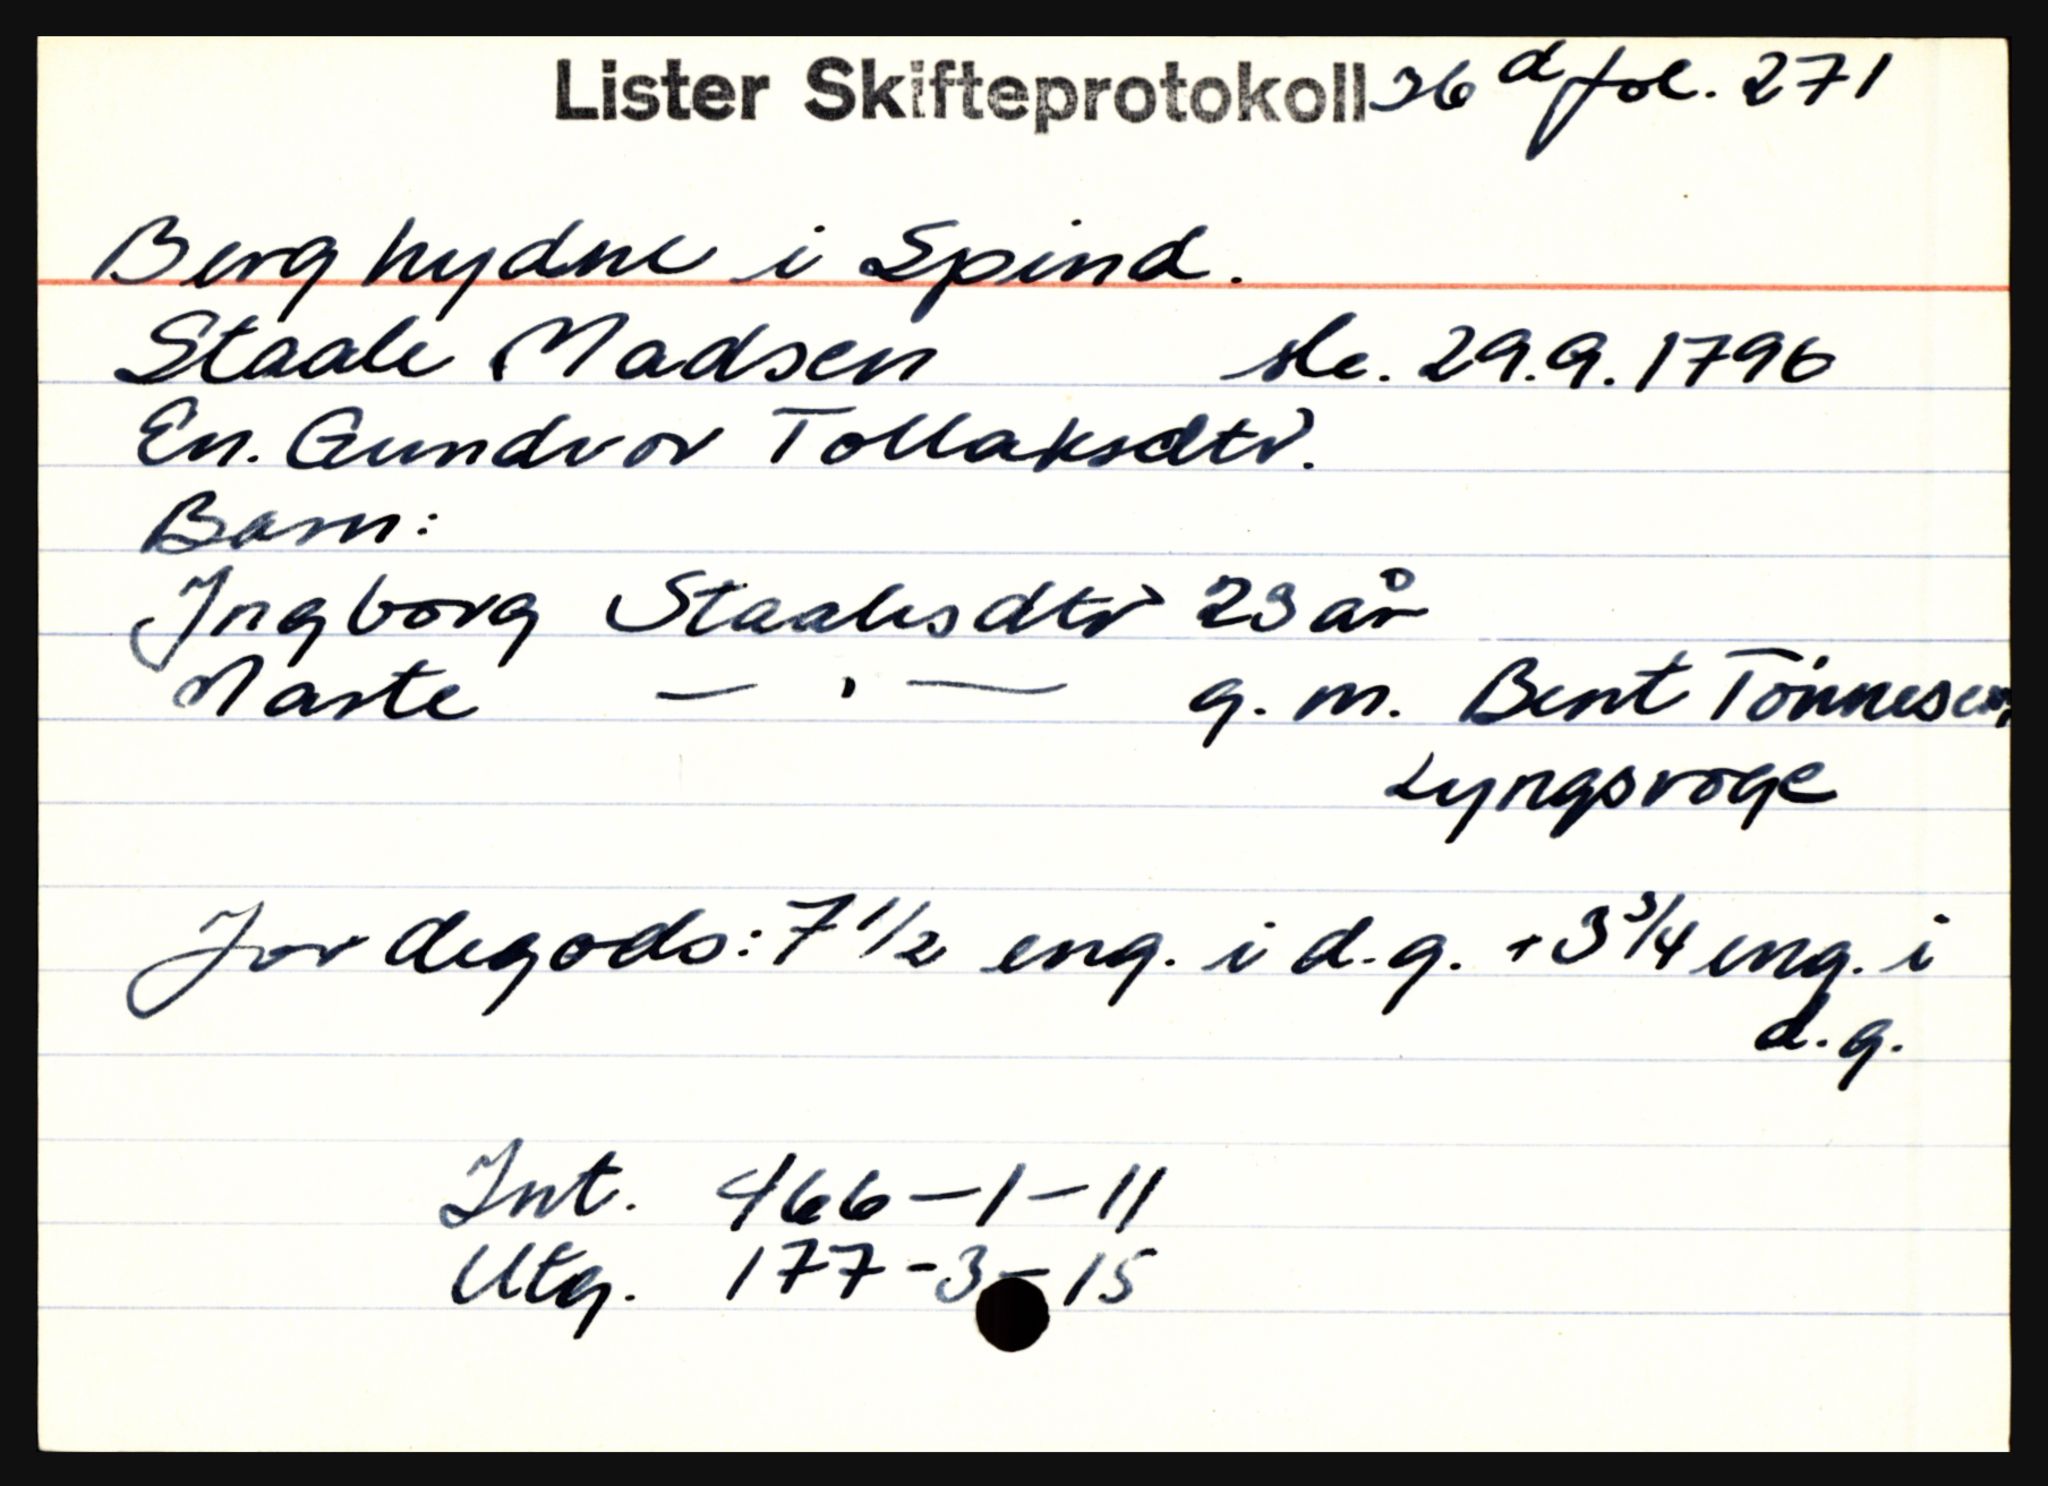 Lister Skifteprotokoll 36 d fol. 271
Berghydne i Spind.
Staale Madsen ske. 29.9.1796
En. Gundvor Tollaksdtr.
Barn:
Ingborg Staalesdtr 23 år
Marte — " — g. m. Bent Tönnesen,
Lyngsvoge
Jordegods: 7 1/2 eng. i d.g. + 3 3/4 eng. i
d.g.
Int. 466 – 1 – 11
Utg. 177 – 3 – 15